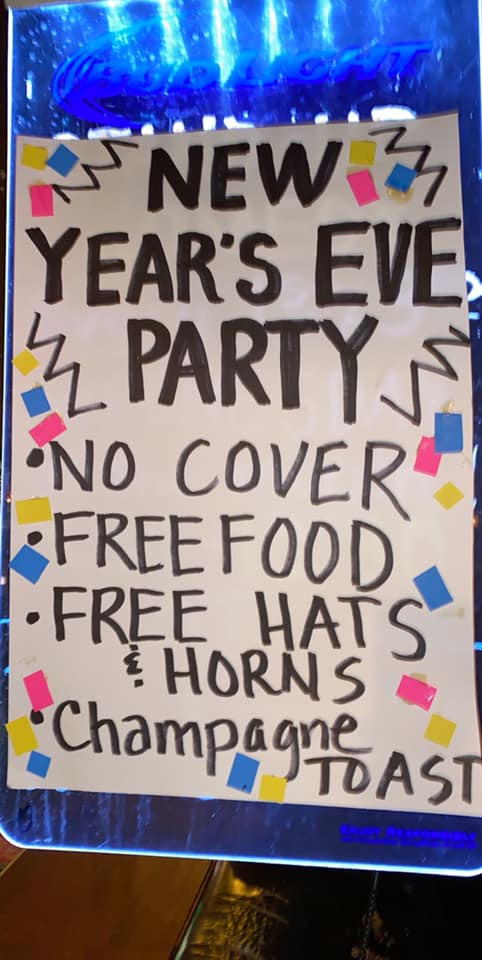 BUD LIGHT
NEW
YEAR'S EVE
PARTY
• NO COVER
• FREE FOOD
• FREE HATS
& HORNS
• Champagne
TOAST
ENJOY RESPONSIBLY